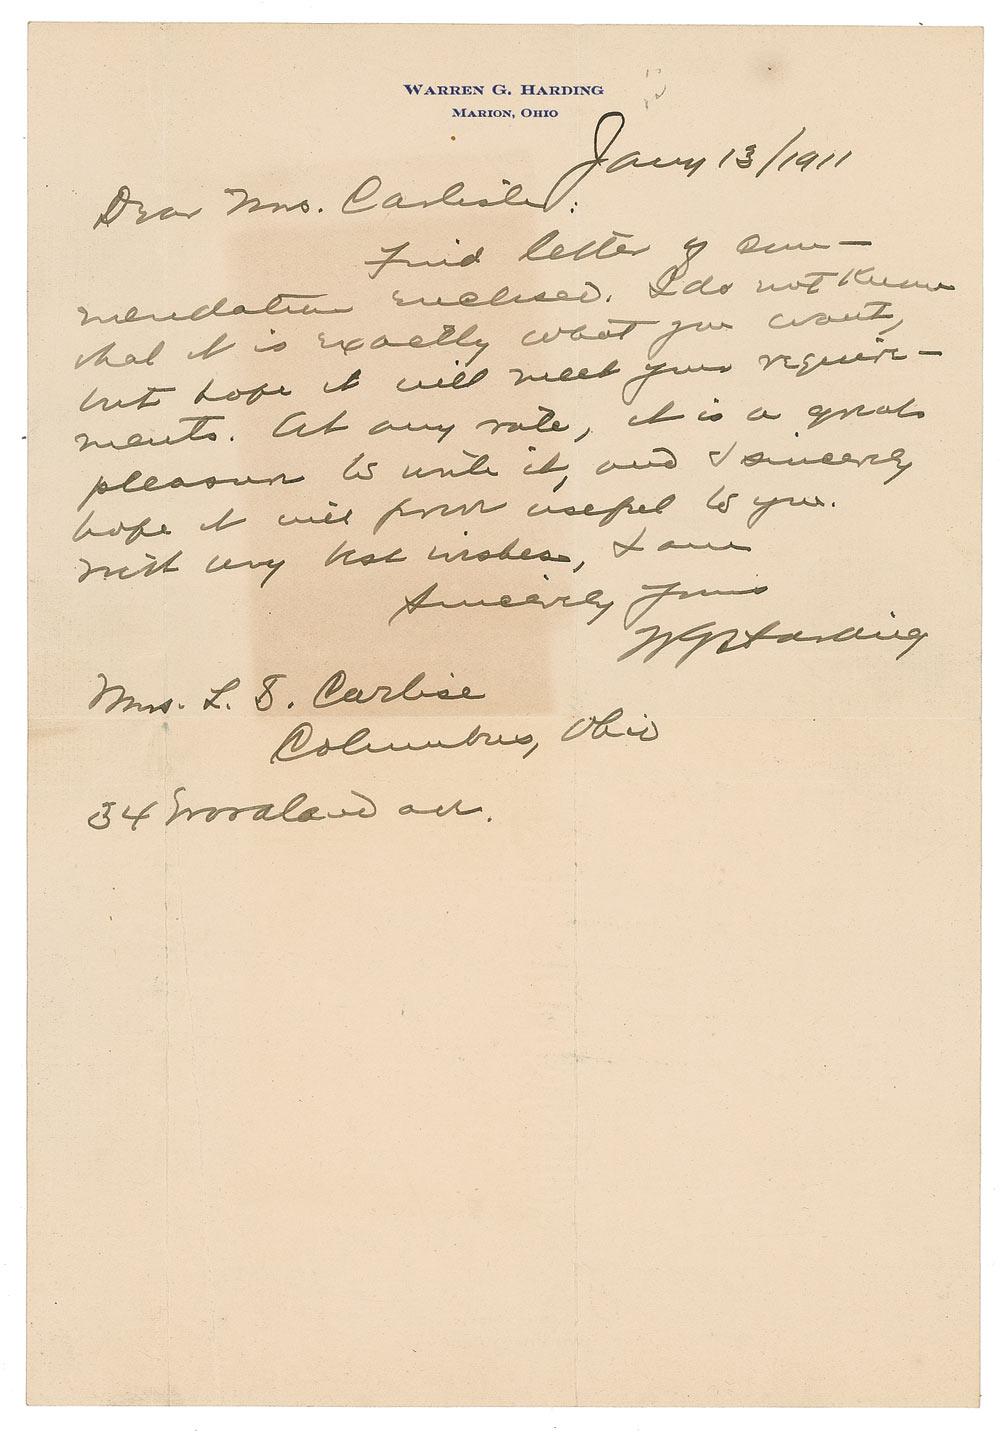 WARREN G. HARDING
MARION, OHIO
Jany 13/1911
Dear Mrs. Carlisle:
Find letter of com-
mendation enclosed. I do not know
that it is exactly what you want,
but hope it will meet your require-
ments. At any rate, it is a great
pleasure to write it, and I sincerely
hope it will prove useful to you.
With very best wishes, I am
Sincerely Yours
WGHarding
Mrs. L. S. Carlise
Columbus, Ohio
34 Woodland ave.